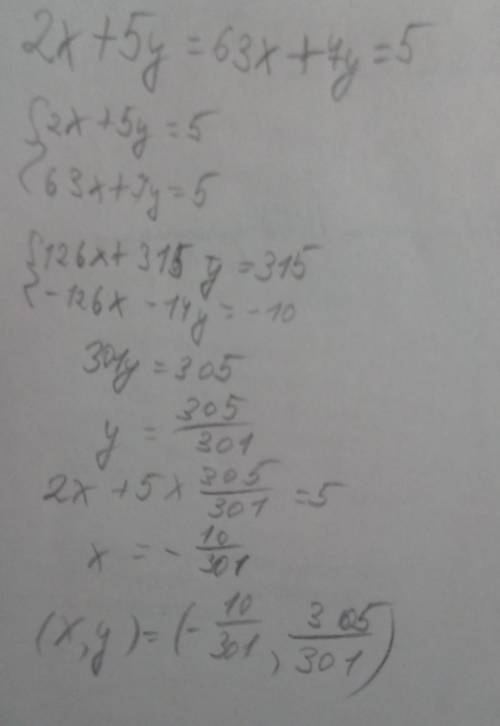 2x+5y=63x+7y=5
{2x+5y=5
63x+7y=5
{126x+315y=315
-126x-14y=-10
301y=305
y=305/301
2x+5×305/301=5
x=-10/301
(x,y)=(-10/301,305/301)